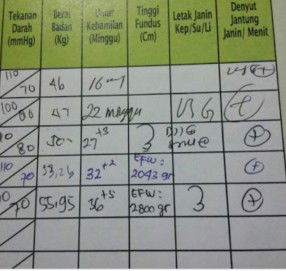 Tekanan Darah (mmHg) Berat Badan (Kg) Umur Kehamilan (Minggu) Tinggi Fundus (Cm) Letak Janin Kep/Su/Li Denyut Jantung Janin/ Menit
110/70 46 16
100 47 22 minggu (+)
80 50 27+3 3 (+)
110/70 53,26 32+2 EFW: 2043 gr (+)
70 55,95 36+5 EFW: 2800 gr 3 (+)